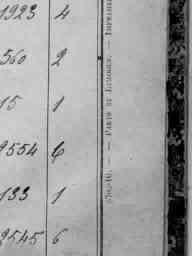 1923 4
560 2
15 1
2554 6
133 1
2545 6
— PARIS ET LIMOGES. — IMPRIMER